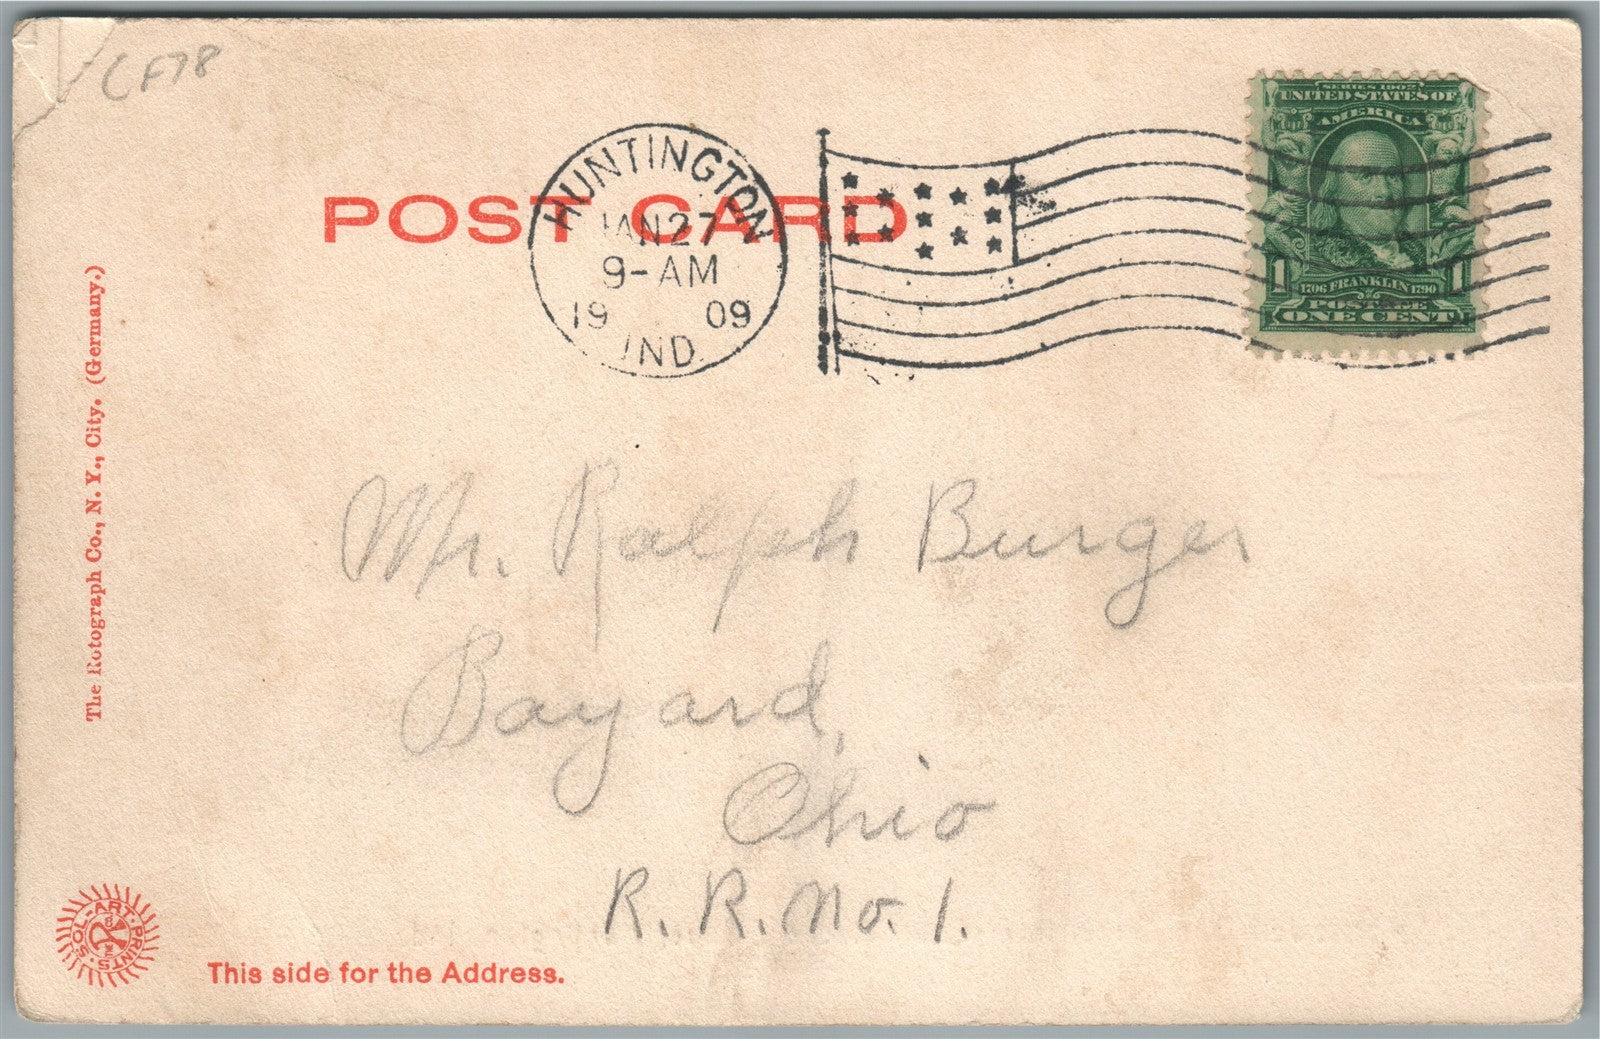 CF78
POST CARD
HUNTINGTON
JAN 27
9-AM
19 09
IND
SERIES 1902
UNITED STATES OF
AMERICA
1 1706 FRANKLIN 1790 1
POSTAGE
ONE CENT
The Rotograph Co., N. Y., City. (Germany.)
Mr. Ralph Burger
Bayard,
Ohio
R. R. No. 1.
SOL-ART PRINTS
This side for the Address.